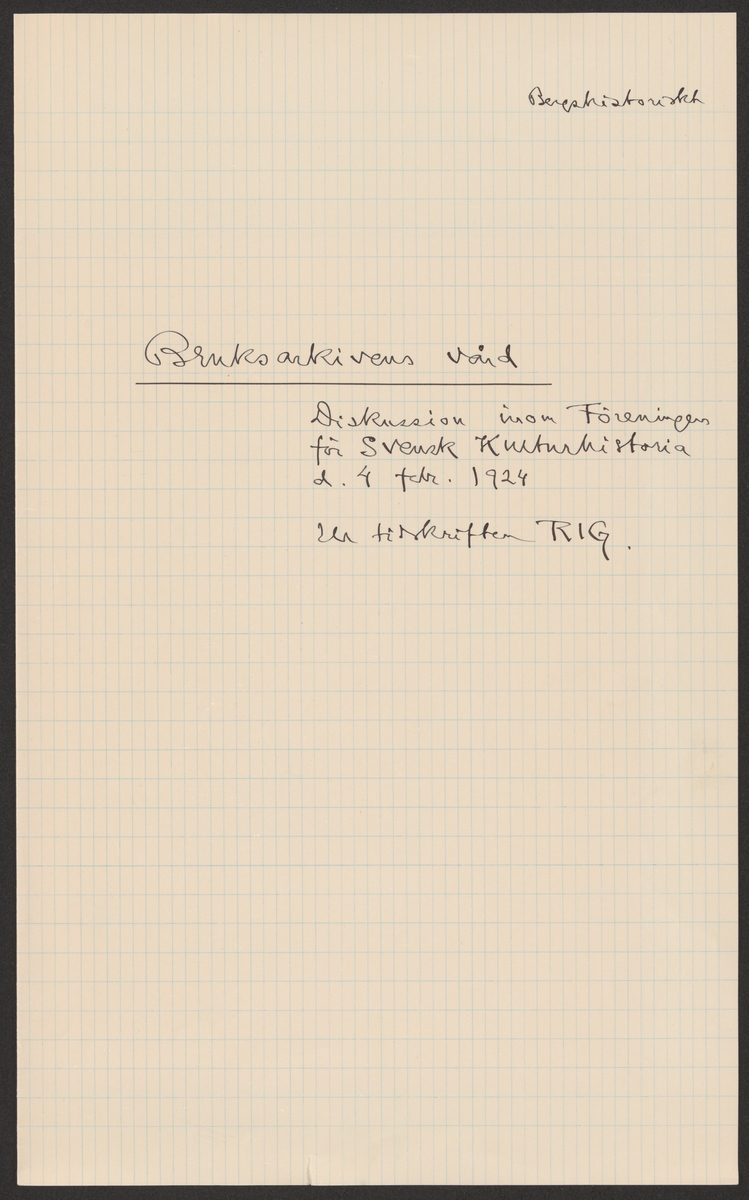 Bergshistoriskt
Bruksarkivens vård
Diskussion inom Föreningen
för Svensk Kulturhistoria
d. 4 febr. 1924
Ur tidskriften RIG.